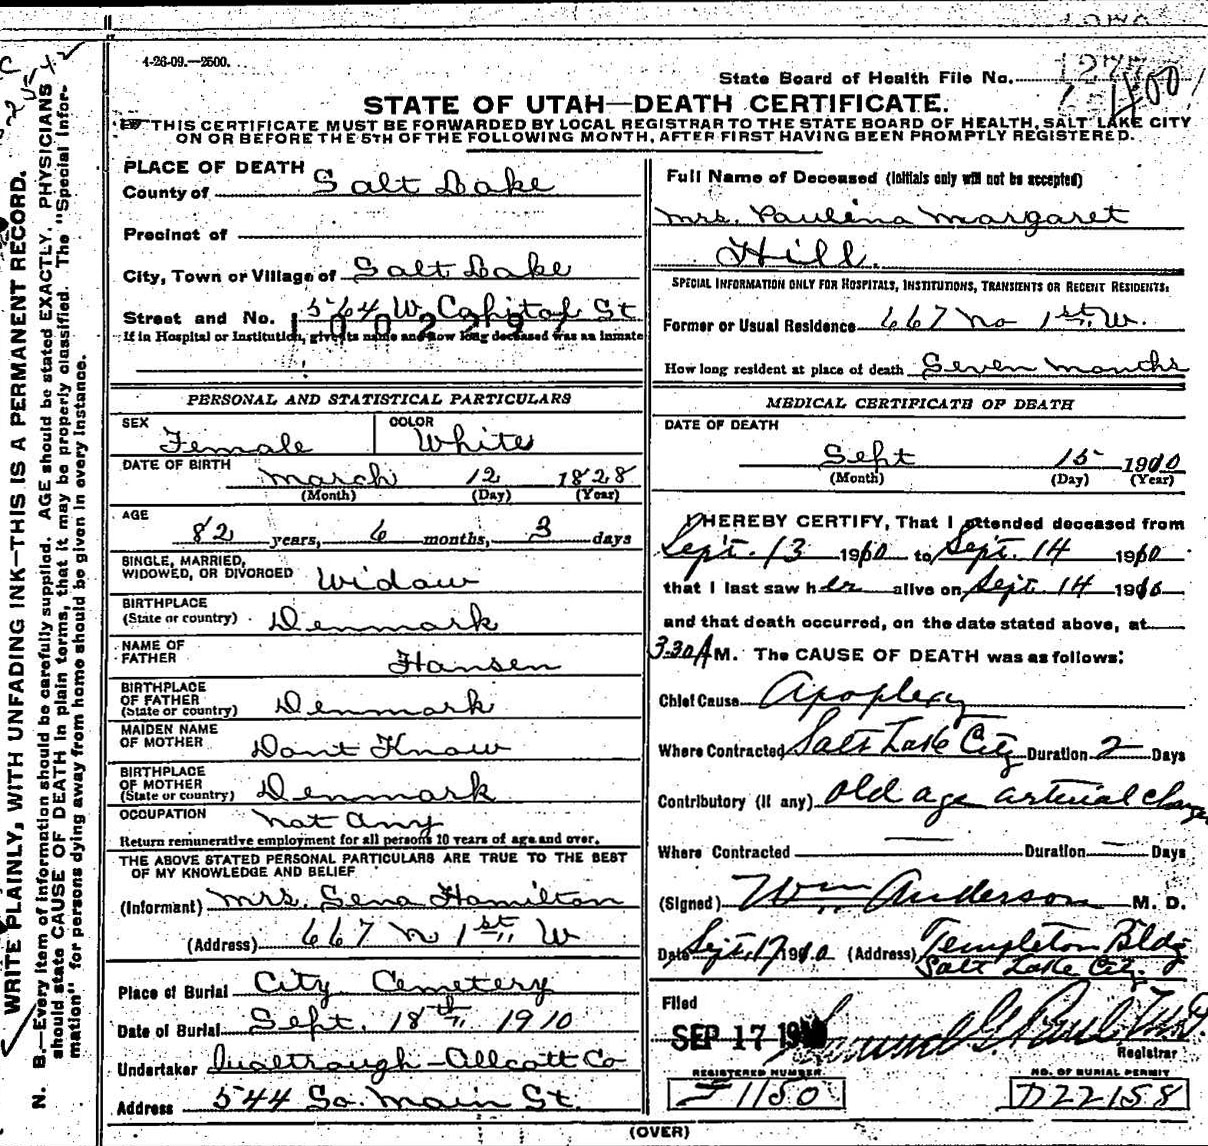 4-26-09.—2500.
State Board of Health File No.
STATE OF UTAH—DEATH CERTIFICATE.
THIS CERTIFICATE MUST BE FORWARDED BY LOCAL REGISTRAR TO THE STATE BOARD OF HEALTH, SALT LAKE CITY
ON OR BEFORE THE 5TH OF THE FOLLOWING MONTH, AFTER FIRST HAVING BEEN PROMPTLY REGISTERED.
WRITE PLAINLY, WITH UNFADING INK—THIS IS A PERMANENT RECORD.
N. B.—Every item of information should be carefully supplied. AGE should be stated EXACTLY. PHYSICIANS
should state CAUSE OF DEATH in plain terms, that it may be properly classified. The "Special Infor-
mation" for persons dying away from home should be given in every instance.
PLACE OF DEATH
County of Salt Lake
Precinct of
City, Town or Village of Salt Lake
Street and No. 564 W. Capitol St
1002297
If in Hospital or Institution, give its name and how long deceased was an inmate
PERSONAL AND STATISTICAL PARTICULARS
SEX Female COLOR White
DATE OF BIRTH March 12 1828
(Month) (Day) (Year)
AGE
82 years, 6 months, 3 days
SINGLE, MARRIED,
WIDOWED, OR DIVORCED Widow
BIRTHPLACE
(State or country) Denmark
NAME OF
FATHER Hansen
BIRTHPLACE
OF FATHER
(State or country) Denmark
MAIDEN NAME
OF MOTHER Dont Know
BIRTHPLACE
OF MOTHER
(State or country) Denmark
OCCUPATION Not Any
Return remunerative employment for all persons 10 years of age and over.
THE ABOVE STATED PERSONAL PARTICULARS ARE TRUE TO THE BEST
OF MY KNOWLEDGE AND BELIEF
(Informant) Mrs. Sena Hamilton
(Address) 667 N 1st W
Place of Burial City Cemetery
Date of Burial Sept. 18th 1910
Undertaker Allcott Co
Address 544 So. Main St.
Full Name of Deceased (Initials only will not be accepted)
Mrs. Paulina Margaret
Hill.
SPECIAL INFORMATION ONLY FOR HOSPITALS, INSTITUTIONS, TRANSIENTS OR RECENT RESIDENTS:
Former or Usual Residence 667 No 1st W.
How long resident at place of death Seven months
MEDICAL CERTIFICATE OF DEATH
DATE OF DEATH
Sept 15 1910
(Month) (Day) (Year)
I HEREBY CERTIFY, That I attended deceased from
Sept. 13 1910 to Sept. 14 1910
that I last saw her alive on Sept. 14 1910
and that death occurred, on the date stated above, at
3.30 A M. The CAUSE OF DEATH was as follows:
Chief Cause Apoplexy
Where Contracted Salt Lake City Duration 2 Days
Contributory (if any) Old age arterial change
Where Contracted — Duration — Days
(Signed) Wm Anderson M. D.
Date Sept. 17 1910 (Address) Templeton Bldg
Salt Lake City.
Filed
SEP 17 1910
Registrar
REGISTERED NUMBER NO. OF BURIAL PERMIT
1150 D22158
(OVER)